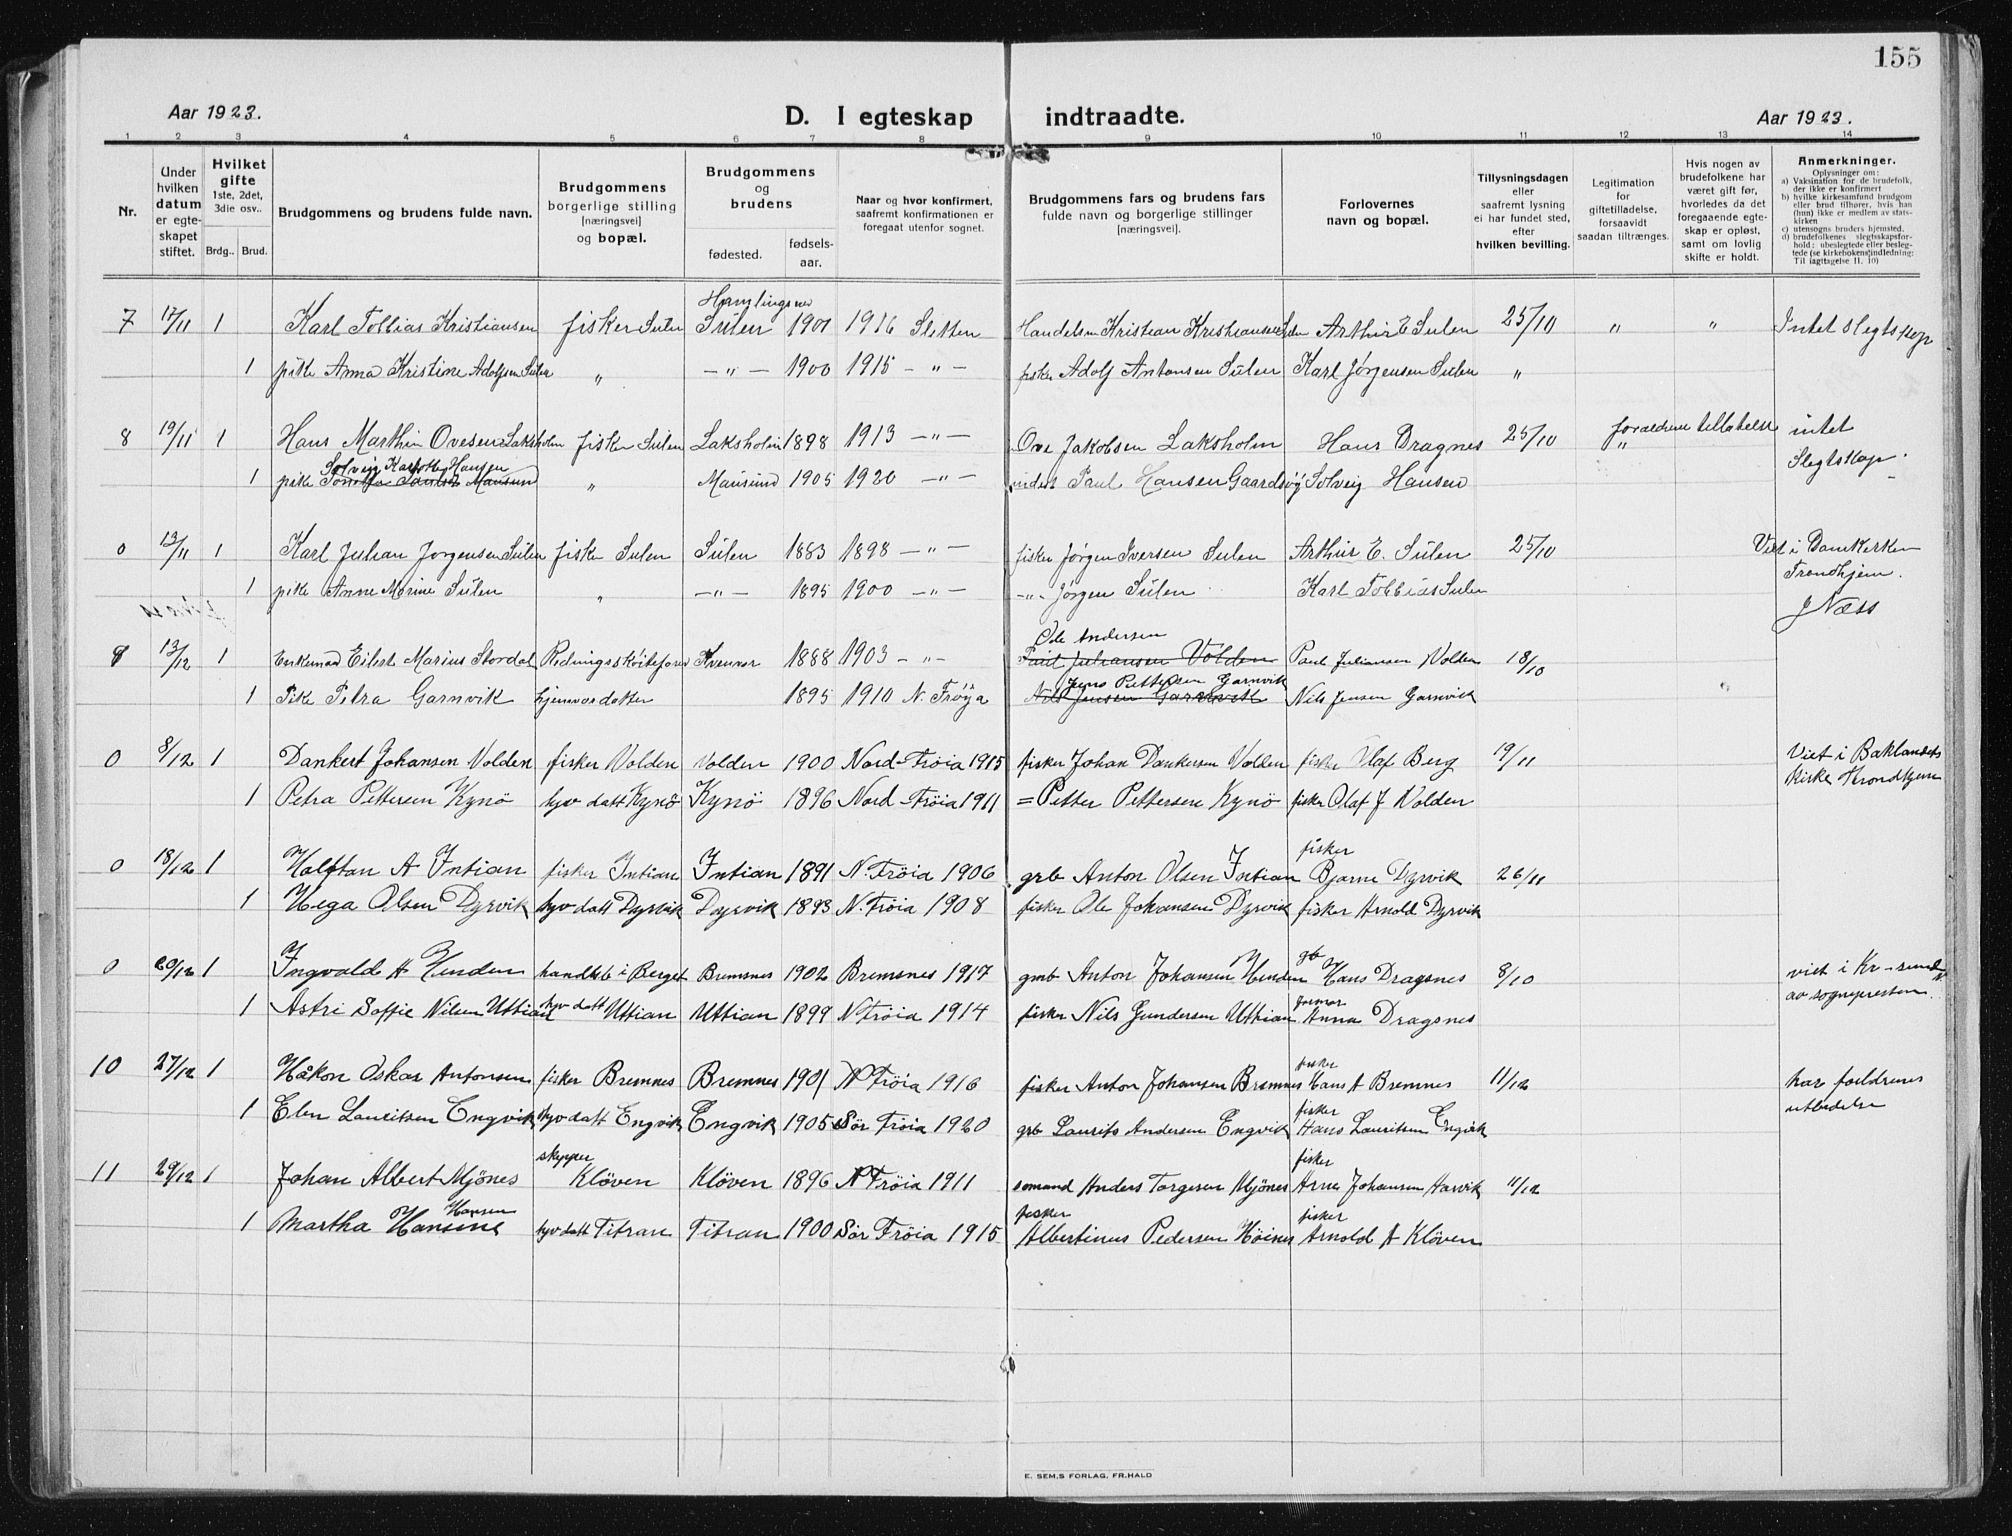 155
Aar 1923. D. I egteskap indtraadte. Aar 1923.
1 2 3 4 5 6 7 8 9 10 11 12 13 14
Nr.
Under hvilken datum er egte-skapet stiftet.
Hvilket gifte 1ste, 2det, 3die osv..
Brdg.. Brud.
Brudgommens og brudens fulde navn.
Brudgommens borgerlige stilling [næringsvei] og bopæl.
Brudgommens og brudens
fødested. fødsels-aar.
Naar og hvor konfirmert, saafremt konfirmationen er foregaat utenfor sognet.
Brudgommens fars og brudens fars fulde navn og borgerlige stillinger [næringsvei].
Forlovernes navn og bopæl.
Tillysningsdagen eller saafremt lysning ei har fundet sted, efter hvilken bevilling.
Legitimation for giftetilladelse, forsaavidt saadan tiltrænges.
Hvis nogen av brudefolkene har været gift før, hvorledes da det foregaaende egte-skap er opløst, samt om lovlig skifte er holdt.
Anmerkninger.
Oplysninger om:
a) Vaksination for de brudefolk, der ikke er konfirmert
b) hvilke kirkesamfund brudgom eller brud tilhører, hvis han (hun) ikke er medlem av stats-kirken
c) utensogns bruders hjemsted.
d) brudefolkenes slegtsskapsfor-hold: ubeslegtede eller besleg-tede (se kirkebokens indledning: Til iagttagelse II. 10)
7 17/11 1 Karl Tobias Kristiansen fisker Sulen Sulen 1901 1916 Sletten Handelsm Kristian Kristiansen Sulen Arthur E Sulen 25/10 " " Intet slegtskap
1 pike Anna Kristine Adolfsen Sulen " — " — 1900 1915 — " — fisker Adolf Antonsen Sulen Karl Jørgensen Sulen "
8 19/11 1 Hans Marthin Ovesen Laksholm fisker Sulen Laksholm 1898 1913 — " — Ove Jakobsen Laksholm Hans Dragnes 25/10 foraldrene tillatelse " intet Slegtskap.
Solveig Hansen
1 pike Mausun " Mausund 1905 1920 — " — Paul Hansen Gaardsøy Solveig Hansen
0 13/11 1 Karl Julian Jorgensen Sulen fisker Sulen Sulen 1883 1898 — " — fisker Jørgen Iversen Sulen Arthur E. Sulen 25/10 Viet i Domkirken Trondhjem.
1 pike Anne Marine Sulen " — " — 1895 1900 — " — — " — Jørgen Sulen Karl Tobias Sulen J Næss
Ole Andersen
13/12 1 Enkemand Eilert Marius Stordal 1888 1903 — " — Paul Juliansen Volden Paul Juliansen Volden 18/10
Jens Pettersen Garnvik
1 Pike Petra Garnvik hjemvær datter 1895 1910 N. Frøya Nils Jensen Garnvik Nils Jensen Garnvik
0 8/12 1 Dankert Johansen Volden fisker Volden Volden 1900 Nord-Fröia 1915 fisker Johan Dankersen Volden fisker Olaf Berg 19/11 Viet i Baklandets Kirke Trondhjem
1 Petra Pettersen Kynö hjv datt Kynö Kynö 1896 Nord-Fröia 1911 = Petter Pettersen Kynö fisker Olaf J Volden
fisker
0 18/12 1 Halftan A Intian fisker Intian Intian 1891 N. Fröia 1906 grb Anton Olsen Intian Bjarne Dyrvik 26/11
1 Hega Olsen Dyrvik hjv datt Dyrvik Dyrvik 1893 N. Fröia 1908 fisker Ole Johansen Dyrvik fisker Arnold Dyrvik
gb
0 20/12 1 Ingvald A Henden handelsb i Berget Bremsnes 1902 Bremsnes 1917 gmb Anton Johansen Henden Hans Dragsnes 8/10 viet i Kr-sund N av sognepresten.
1 Astri Soffie Nilsen Uttian hjv datt Uttian Uttian 1899 N Fröia 1914 fisker Nils Gundersen Uttian Anna Dragsnes
fisker
10 27/12 1 Håkon Oskar Antonsen fisker Bremnes Bremnes 1901 N Fröia 1916 fisker Anton Johansen Bremnes Hans A Bremnes 11/12 har foreldrenes
fisker
1 Elen Lauritsen Engvik hjv datt Engvik Engvik 1905 Sör Fröia 1920 grb Laurits Andersen Engvik Hans Lauritsen Engvik
skipper fisker
11 29/12 1 Johan Albert Mjönes Klöven Klöven 1896 N Fröia 1911 sömand Anders Torgersen Mjönes Arne Johansen Harvik 11/12
Hansen fisker fisker
1 Martha Hansine hjv datt Titran Titran 1900 Sör Fröia 1915 Albertinus Pedersen Höines Arnold A Klöven
E. SEM,S FORLAG, FR.HALD